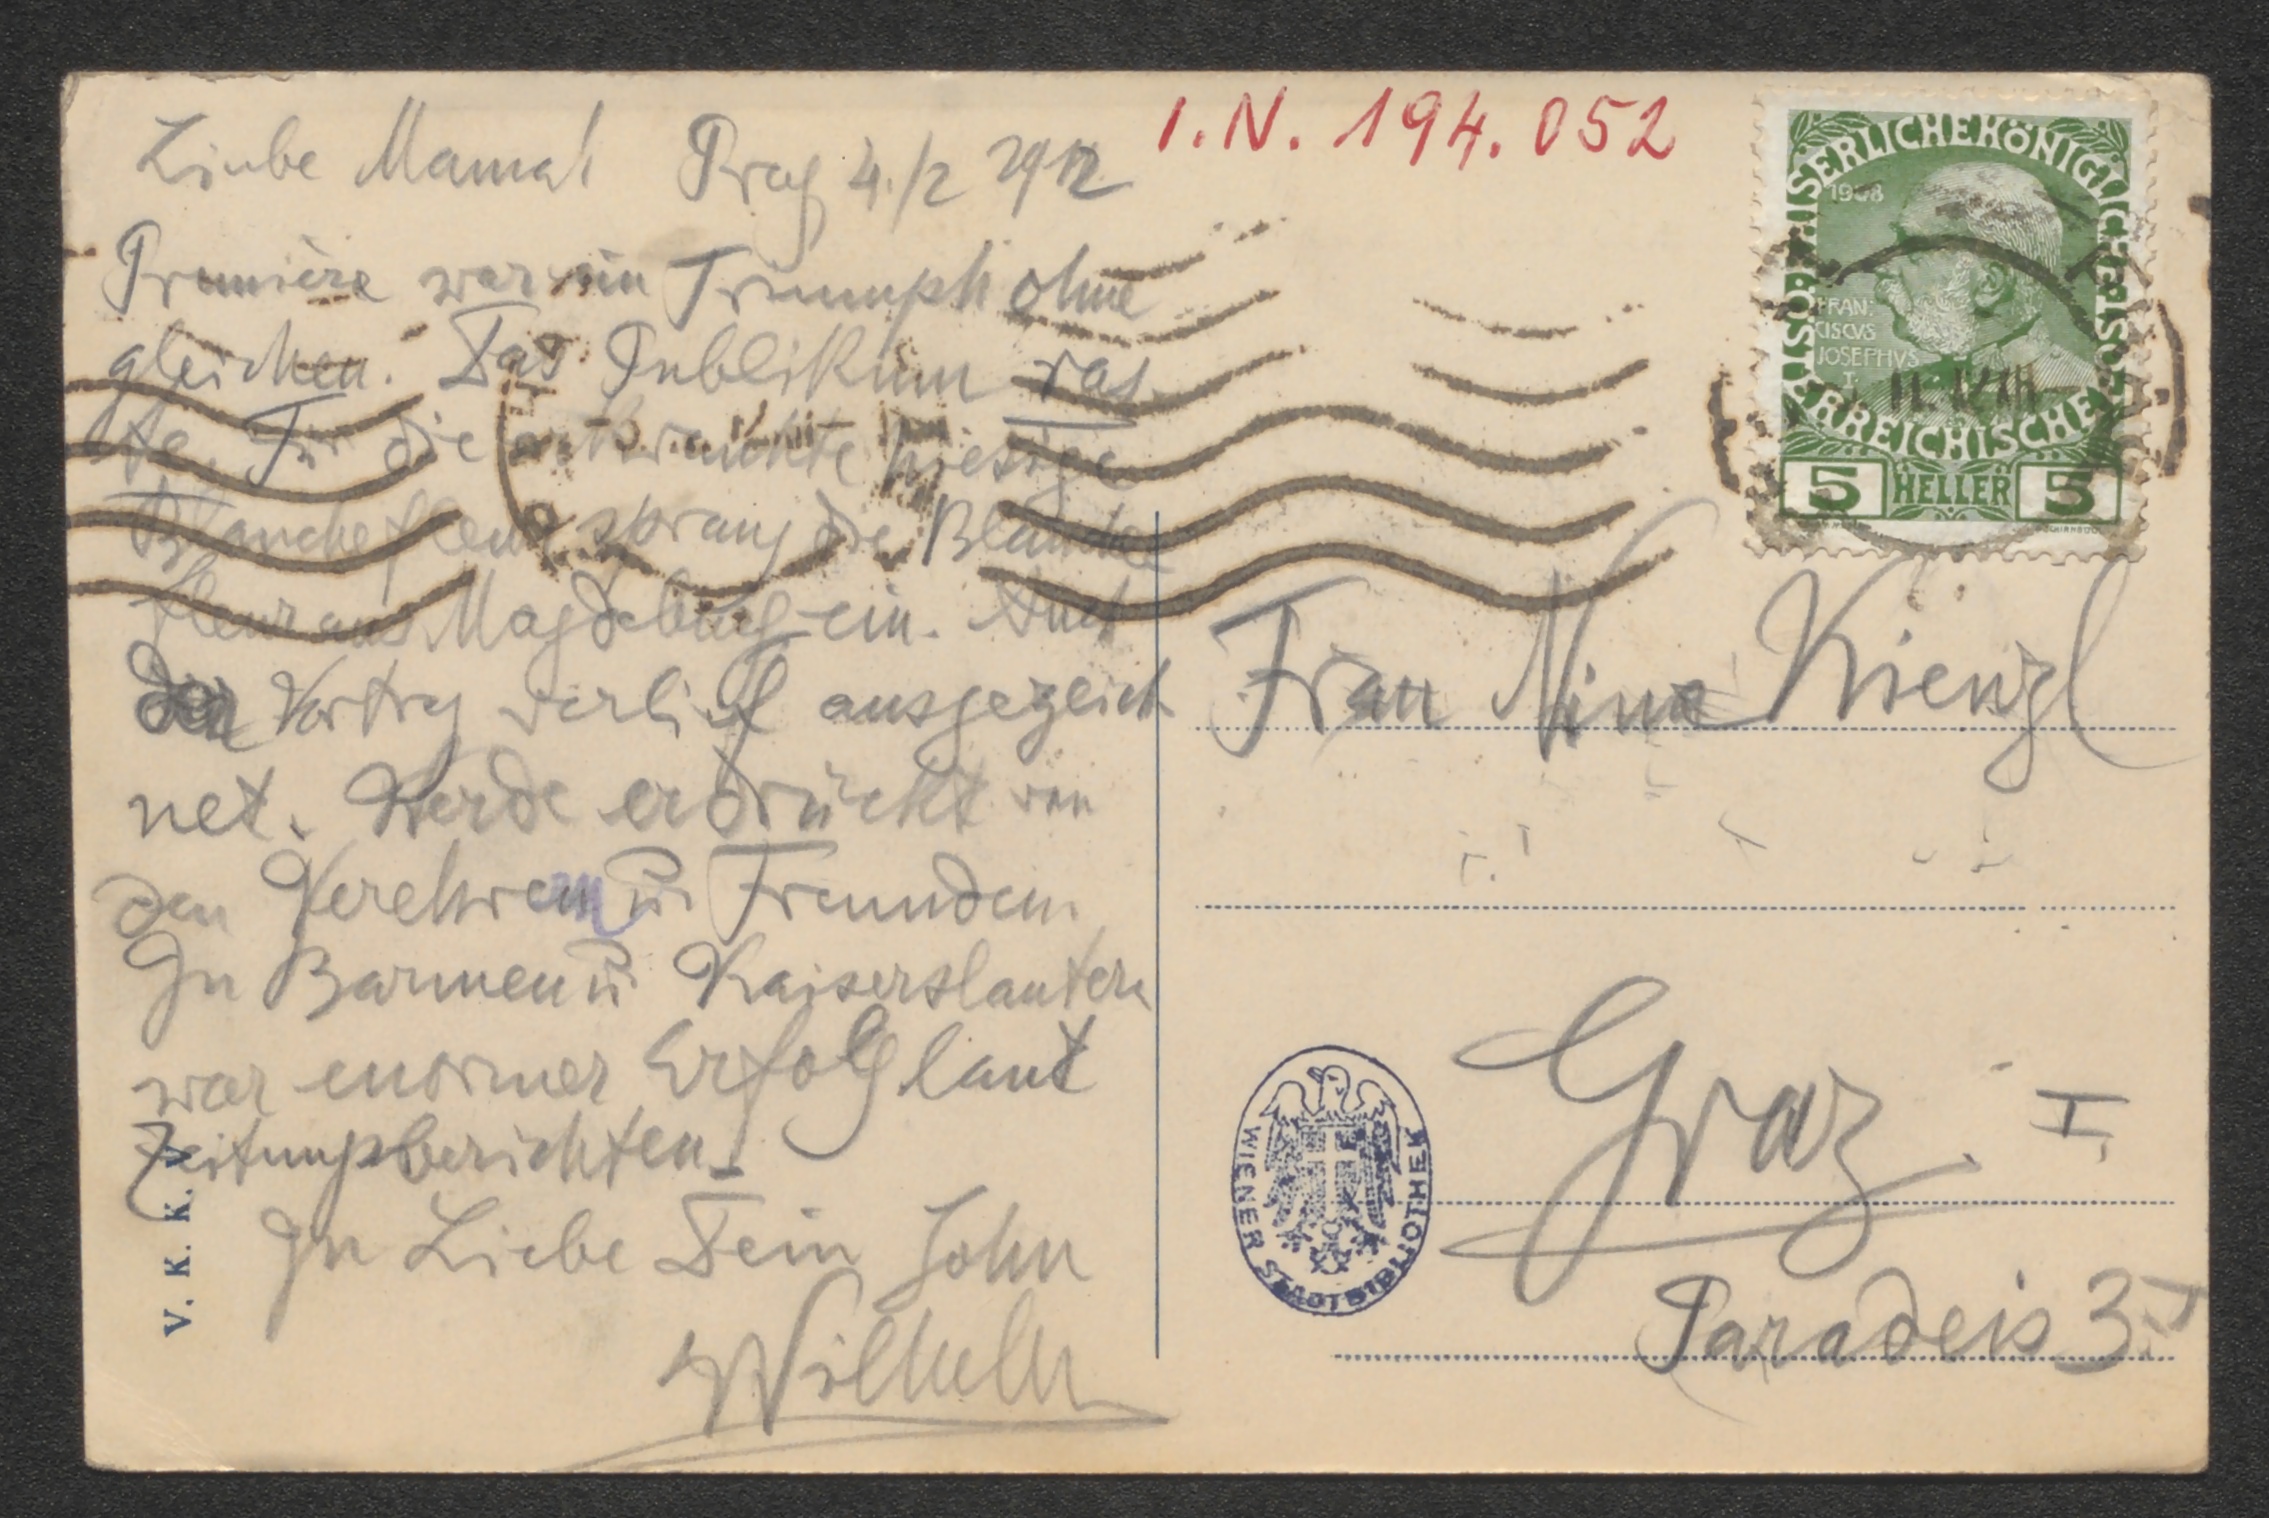 Liebe Mama! Prag 4./2 1912
Première war ein Triumph ohne
gleichen. Das Publikum ras-
te. Für die erkrankte hiesige
Blanchefleur sprang die Blanche-
fleur aus Magdeburg ein. Auch
der Vortrag verlief ausgezeich
net. Werde erdrückt von
den Verehrern u. Freunden.
In Barmen u. Kaiserslautern
war enormer Erfolg laut
Zeitungsberichten.
In Liebe Dein Sohn
Wilhelm
V. K. K. V.
I.N. 194.052
KAISERLICHE KÖNIGLICHE
ÖSTERREICHISCHE
1908
FRAN:
CISCVS
JOSEPHVS
I.
5 HELLER 5
Frau Nina Kienzl
Graz I
Paradeis 3.
WIENER STADTBIBLIOTHEK